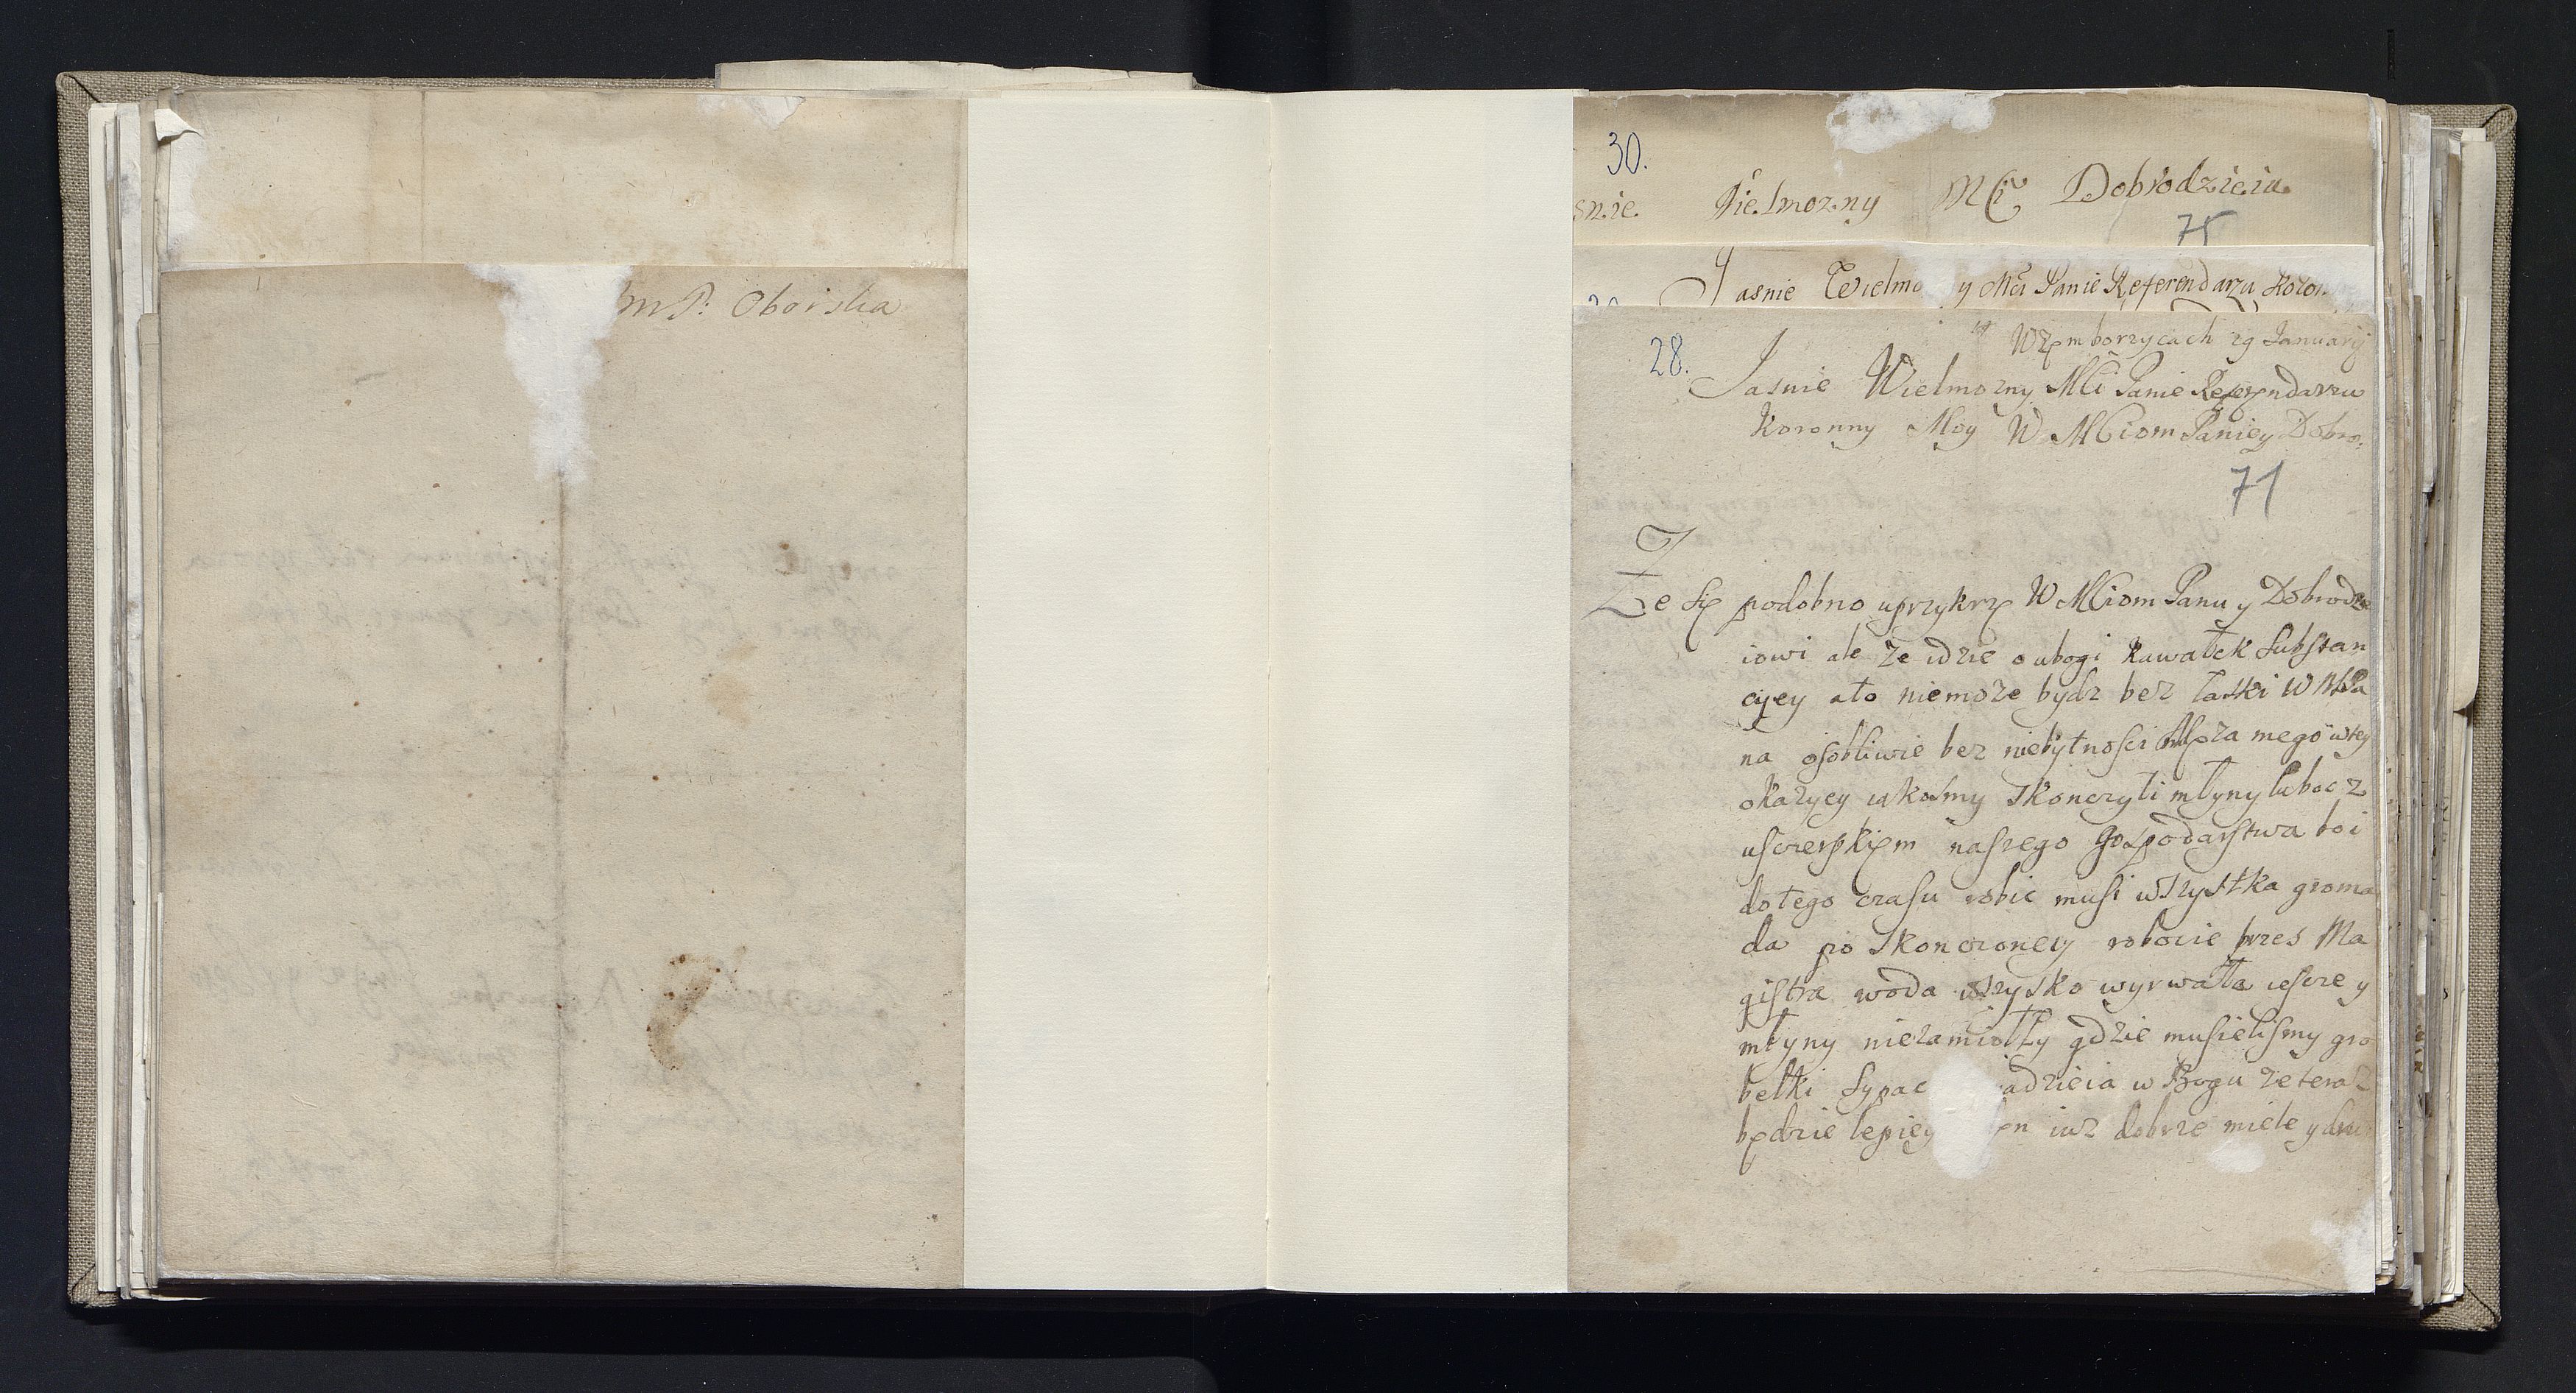 mP: Oborska
30.
snie Wielmozny MCi Dobrodzieia
75
Jasnie Wielmo y MCi Panie Referendarzu Koron
W Zemborzycach 29 Januarij
28.
Jasnie Wielmozny MCi Panie Referendarzu
Koronny Moy W MCiom Paniey Dobro:
71
Ze się podobno uprzykrzę W MCiom Panu y Dobrodze
iowi ale ze idzie o ubogi kawałek Substan
cijey ato niemoze bydz bez łaski W MPa
na osobliwie bez niebytnosci Męza mego wtey
okazyey iakosmy Skonczyli młyny luboc z
usczerpkięm naszego Gospodarstwa bo i
dotego czasu robic musi wszystka groma
da po Skonczoney robocie przes Ma
gistra woda wszysko wyrwała iescze y
młyny niezamiołły gdzie musielismy gro
belki Sypac adzieia w Bogu ze teraz
będzie lepiey ięn iuz dobrze miele y dru